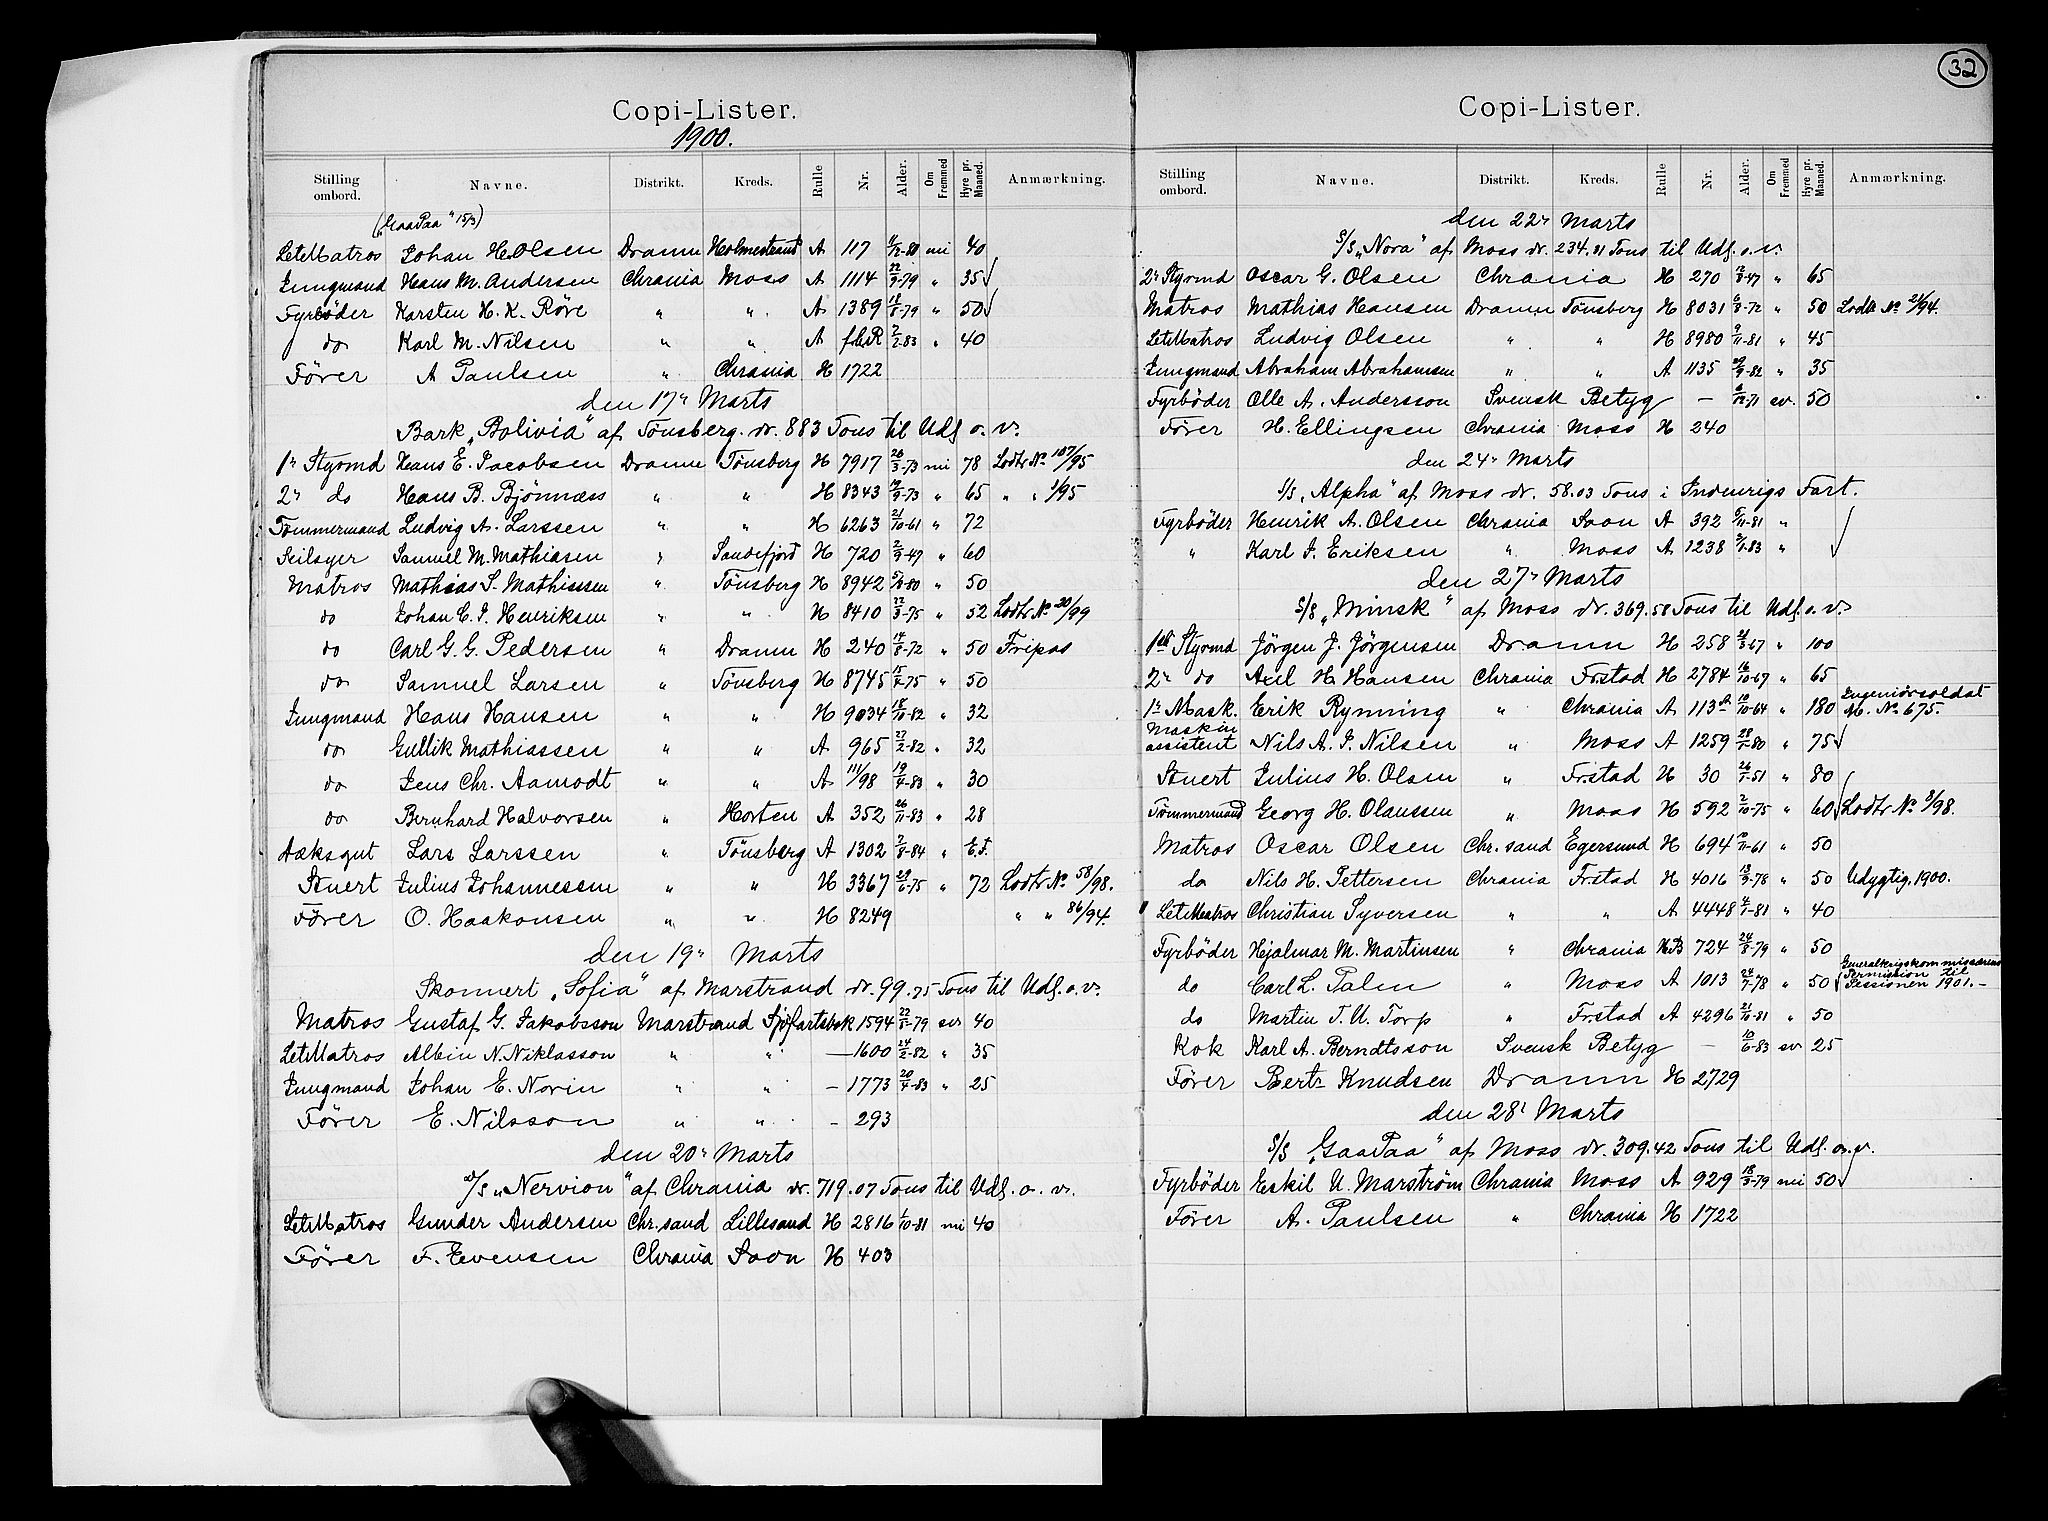 Copi-Lister.
1900.
Stilling ombord. Navne. Distrikt. Kreds. Rulle Nr. Alder. Om Fremmed Hyre pr. Maaned. Anmærkning.
(„GaaPaa" 15/3)
LetMatros Johan H. Olsen Dramn Holmestrand A 117 -80 mi 40
Jungmand Hans M. Andersen Chrania Moss A 1114 22/9-79 " 35
Fyrbøder Karsten H. K. Røre " " A 1389 18/8-79 " 50
do Karl M. Nilsen " " A 2/2-83 " 40
Fører A Paulsen " Chrania H 1722
den 17' Marts
Bark „Bolivia" af Tönsberg. dr. 883 Tons til Udl. o. v.
1' Styrmd Hans E. Jacobsen Dramn Tönsberg H 7917 26/3-73 mi 78 Lodtr No 107/95
2' do Hans B. Bjönnæss " " H 8343 19/9-73 " 65 " " 1/95
Tømmermand Ludvig A. Larssen " " H 6263 21/10-61 " 72
Seilsyer Samuel M. Mathiasen " Sandefjord H 720 2/9-47 " 60
Matros Mathias S. Mathiassen " Tönsberg H 8942 -80 " 50
do Johan C. J. Henriksen " " H 8410 22/3-75 " 52 Lodtr No 30/99
do Carl G. G. Pedersen " Dramn H 240 14/8-72 " 50 Fripas
do Samuel Larsen " Tönsberg H 8745 -75 " 50
Jungmand Hans Hansen " " H 9034 18/10-82 " 32
do Gullik Mathiassen " " A 965 27/2-82 " 32
do Jens Chr. Aamodt " " A 111/98 19/4-83 " 30
do Bernhard Halvorsen " Horten A 352 26/11-83 " 28
Dæksgut Lars Larssen " Tönsberg A 1302 2/8-84 " E.F.
Stuert Julius Johannessen " " H 3367 28/6-75 " 72 Lodtr No 58/98.
Fører O. Haakonsen " " H 8249 " " 86/94.
den 19' Marts
Skonnert „Sofia" af Marstrand dr. 99.75 Tons til Udl. o. v.
Matros Gustaf G. Jakobsson Marstrand Sjöfartsbok 1594 22/5-79 sv 40
LetMatros Albin N. Niklasson " " — 1600 24/2-82 " 35
Jungmand Johan E. Norin " " - 1773 20/4-83 " 25
Fører E. Nilsson " " - 293
den 20' Marts
D/S „Nervion" af Chrania dr. 719.07 Tons til Udl. o. v.
LetMatros Gunder Andersen Chr.sand Lillesand H 2816 1/10-81 mi 40
Fører F. Evensen Chrania Soon H 403
32
Copi-Lister.
Stilling ombord. Navne. Distrikt. Kreds. Rulle Nr. Alder. Om Fremmed Hyre pr. Maaned. Anmærkning.
den 22' Marts
S/S „Nora" af Moss dr. 234.81 Tons til Udl. o. v.
2' Styrmd Oscar G. Olsen Chrania H 270 12/8-47 " 65
Matros Mathias Hansen Dramn Tönsberg H 8031 6/8-72 " 50 Lodtr No 21/94.
LetMatros Ludvig Olsen " " H 8980 9/11-81 " 45
Jungmand Abraham Abrahamsen " " A 1135 29/9-82 " 35
Fyrbøder Olle A. Andersson Svensk Betyg — 6/12-71 sv. 50
Fører H. Ellingsen Chrania Moss H 240
den 24' Marts
S/S „Alpha" af Moss dr. 58.03 Tons i Indenrigs Fart.
Fyrbøder Henrik A. Olsen Chrania Soon A 392 5/11-81 "
" Karl J. Eriksen " Moss A 1238 3/1-83 "
den 27' Marts
S/S „Minsk" af Moss dr. 369.58 Tons til Udl. o. v.
1ste Styrmd Jörgen J. Jörgensen Dramn H 258 -67 " 100
2' do Axel H Hansen Chrania Fr.stad H 2784 16/10-67 " 65
1' Mask. Erik Rynning " Chrania A 113 b 10/10-64 " 180 Ingeniörsoldat M. No 675.
Maskin assistent Nils A. J. Nilsen " Moss A 1259 28/1-80 " 75
Stuert Julius H. Olsen " Fr.stad H 30 26/1-51 " 80
Tømmermand Georg H. Olaussen " Moss H 592 2/10-75 " 60 Lodtr No 8/98.
Matros Oscar Olsen Chr.sand Egersund H 694 19/11-61 " 50
do Nils H. Pettersen Chrania Fr.stad H 4016 13/9-78 " 50 Udygtig 1900.
LetMatros Christian Syversen " " A 4448 4/1-81 " 40
Fyrbøder Hjalmar M. Martinsen " Chrania HB 724 24/8-79 " 50
do Carl L. Palm " Moss A 1013 24/7-78 " 50 Generalkrigskommisærens Permission til Sessionen 1901.-
do Martin T. U. Torp " Fr.stad A 4296 21/10-81 " 50
Kok Karl A. Berndtsson Svensk Betyg — 10/6-83 sv 25
Fører Bertr Knudsen Dramn H 2729
den 28' Marts
S/S „GaaPaa" af Moss dr. 309.42 Tons til Udl. o. v.
Fyrbøder Eskil U. Marström Chrania Moss A 929 18/3-79 mi 50
Fører A. Paulsen " Chrania H 1722